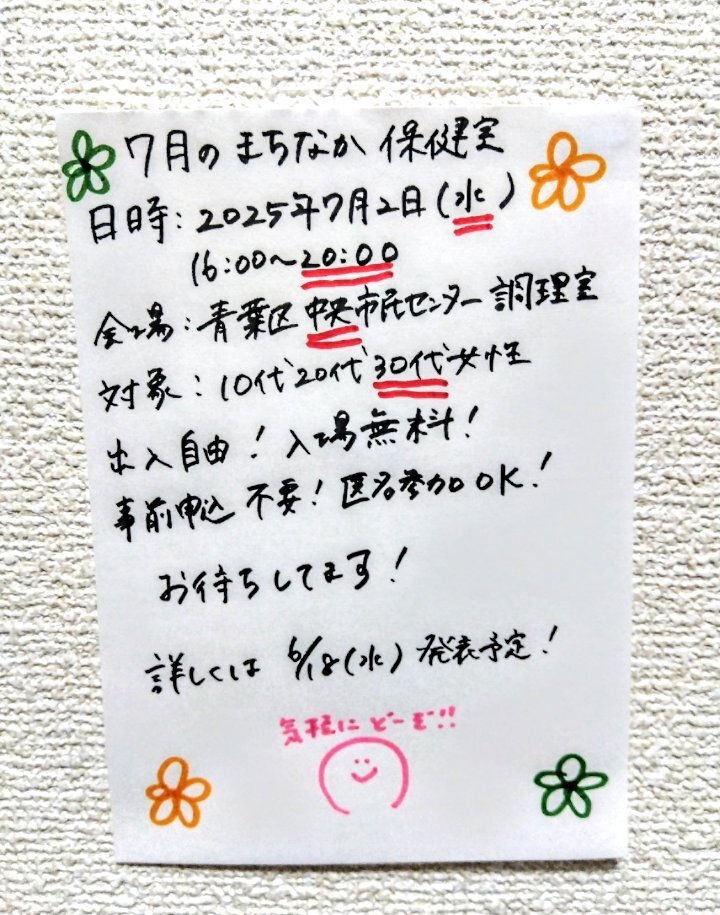 7月のまちなか保健室
日時：2025年7月2日(水)
16:00〜20:00
会場：青葉区中央市民センター調理室
対象：10代20代30代女性
出入自由！入場無料！
事前申込不要！匿名参加OK！
お待ちしてます！
詳しくは 6/18(水) 発表予定！
気軽にどーぞ!!